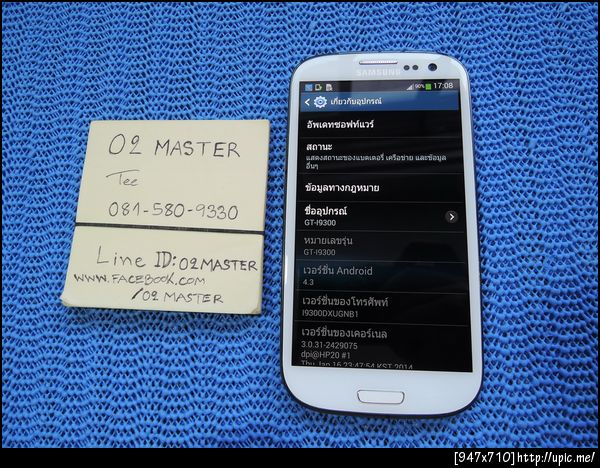 O2 MASTER
Tee
081-580-9330
Line ID:O2MASTER
WWW.FACEBOOK.COM
/O2 MASTER
SAMSUNG
90% 17:08
เกี่ยวกับอุปกรณ์
อัพเดทซอฟท์แวร์
สถานะ
แสดงสถานะของแบตเตอรี่ เครือข่าย และข้อมูล
อื่นๆ
ข้อมูลทางกฎหมาย
ชื่ออุปกรณ์
GT-I9300
หมายเลขรุ่น
GT-I9300
เวอร์ชั่น Android
4.3
เวอร์ชั่นของโทรศัพท์
I9300DXUGNB1
เวอร์ชั่นของเคอร์เนล
3.0.31-2429075
dpi@HP20 #1
Thu Jan 16 23:47:54 KST 2014
[947x710]http://upic.me/